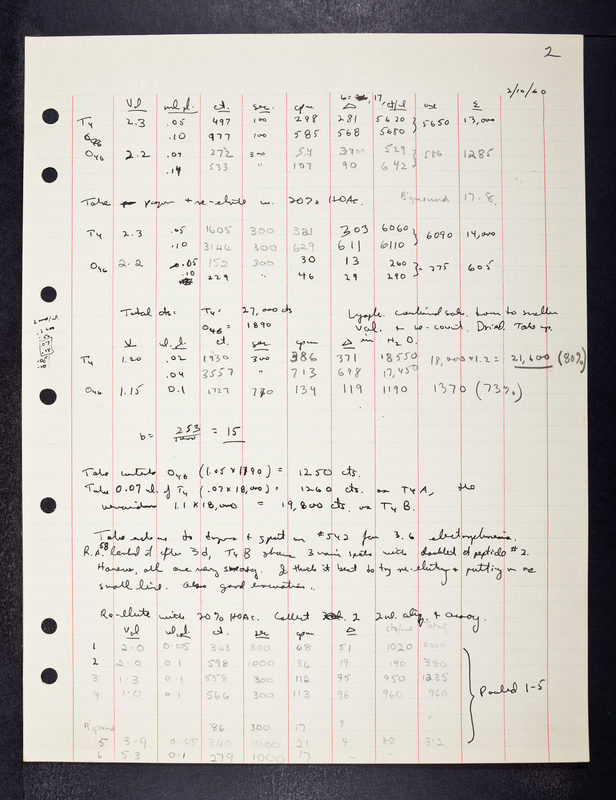 2
2/10/60
Vol ct. sec. cpm Δ Σ
T4 2.3 .05 497 100 298 281 5620 5650 13,000
.10 977 100 585 568 5680
O46 2.2 .07 272 300 54 529 586 1285
.14 533 " 107 90 642
Take paper + re-elute w. 20% HOAc. B'ground 17.8
T4 2.3 .05 1605 300 321 303 6060 6090 14,000
.10 3144 300 629 611 6110
O46 2.2 0.05 152 300 30 13 260 275 605
.10 229 " 46 29 290
Total cts: T4: 27,000 cts
O46 = 1890
Lyoph. combined sols. down to smaller
vol. & re-count. Dried. Take up
in H2O.
ct. sec. cpm Δ
T4 1.20 .02 1930 300 386 371 18550 18,000 x 1.2 = 21,600 (80%)
.04 3557 " 713 698 17,450
O46 1.15 0.1 1727 134 119 1190 1370 (73%)
b = 253/1000 = 15
Take O46 (1.05 x 1190) = 1250 cts.
Take 0.07 ml. of T4 (.07 x 18,000) = 1260 cts. as T4 A, the
remainder 1.1 x 18,000 = 19,800 cts. as T4 B.
Take to dryness & spot on #542 for 3.6 electrophoresis.
R.A. looked at after 3d, T4 B shows 3 main spots with doublet of peptide #2.
However, all are very smeary. I think it best to try re-eluting & putting on one
small line. Also good
Re-elute with 20% HOAc. Collect 2 2ml. aliq. & assay.
Vol ml.pl. ct. sec cpm Δ cts/ml Total
1 2.0 0.05 343 300 68 51 1020 2040
2 2.0 0.1 598 1000 36 19 190 380
3 1.3 0.1 558 300 112 95 950 1235
4 1.0 0.1 566 300 113 96 960 960
Pooled 1-5
B'ground 86 300 17
5 3.9 0.05 340 1000 21 4 80 312
6 5.3 0.1 279 1000 17 - -